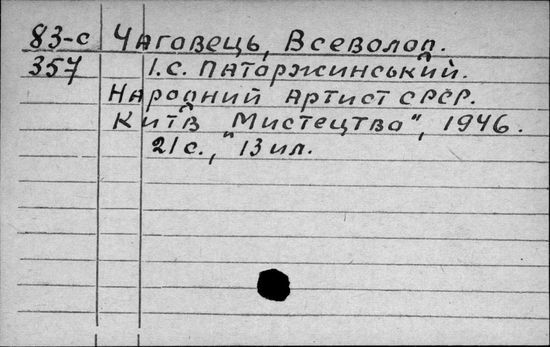 83-с Чаговець, Всеволод.
357 І.С. Паторжинський.
Народний артист СРСР.
Київ „Мистецтво", 1946.
21с., 13 ил.